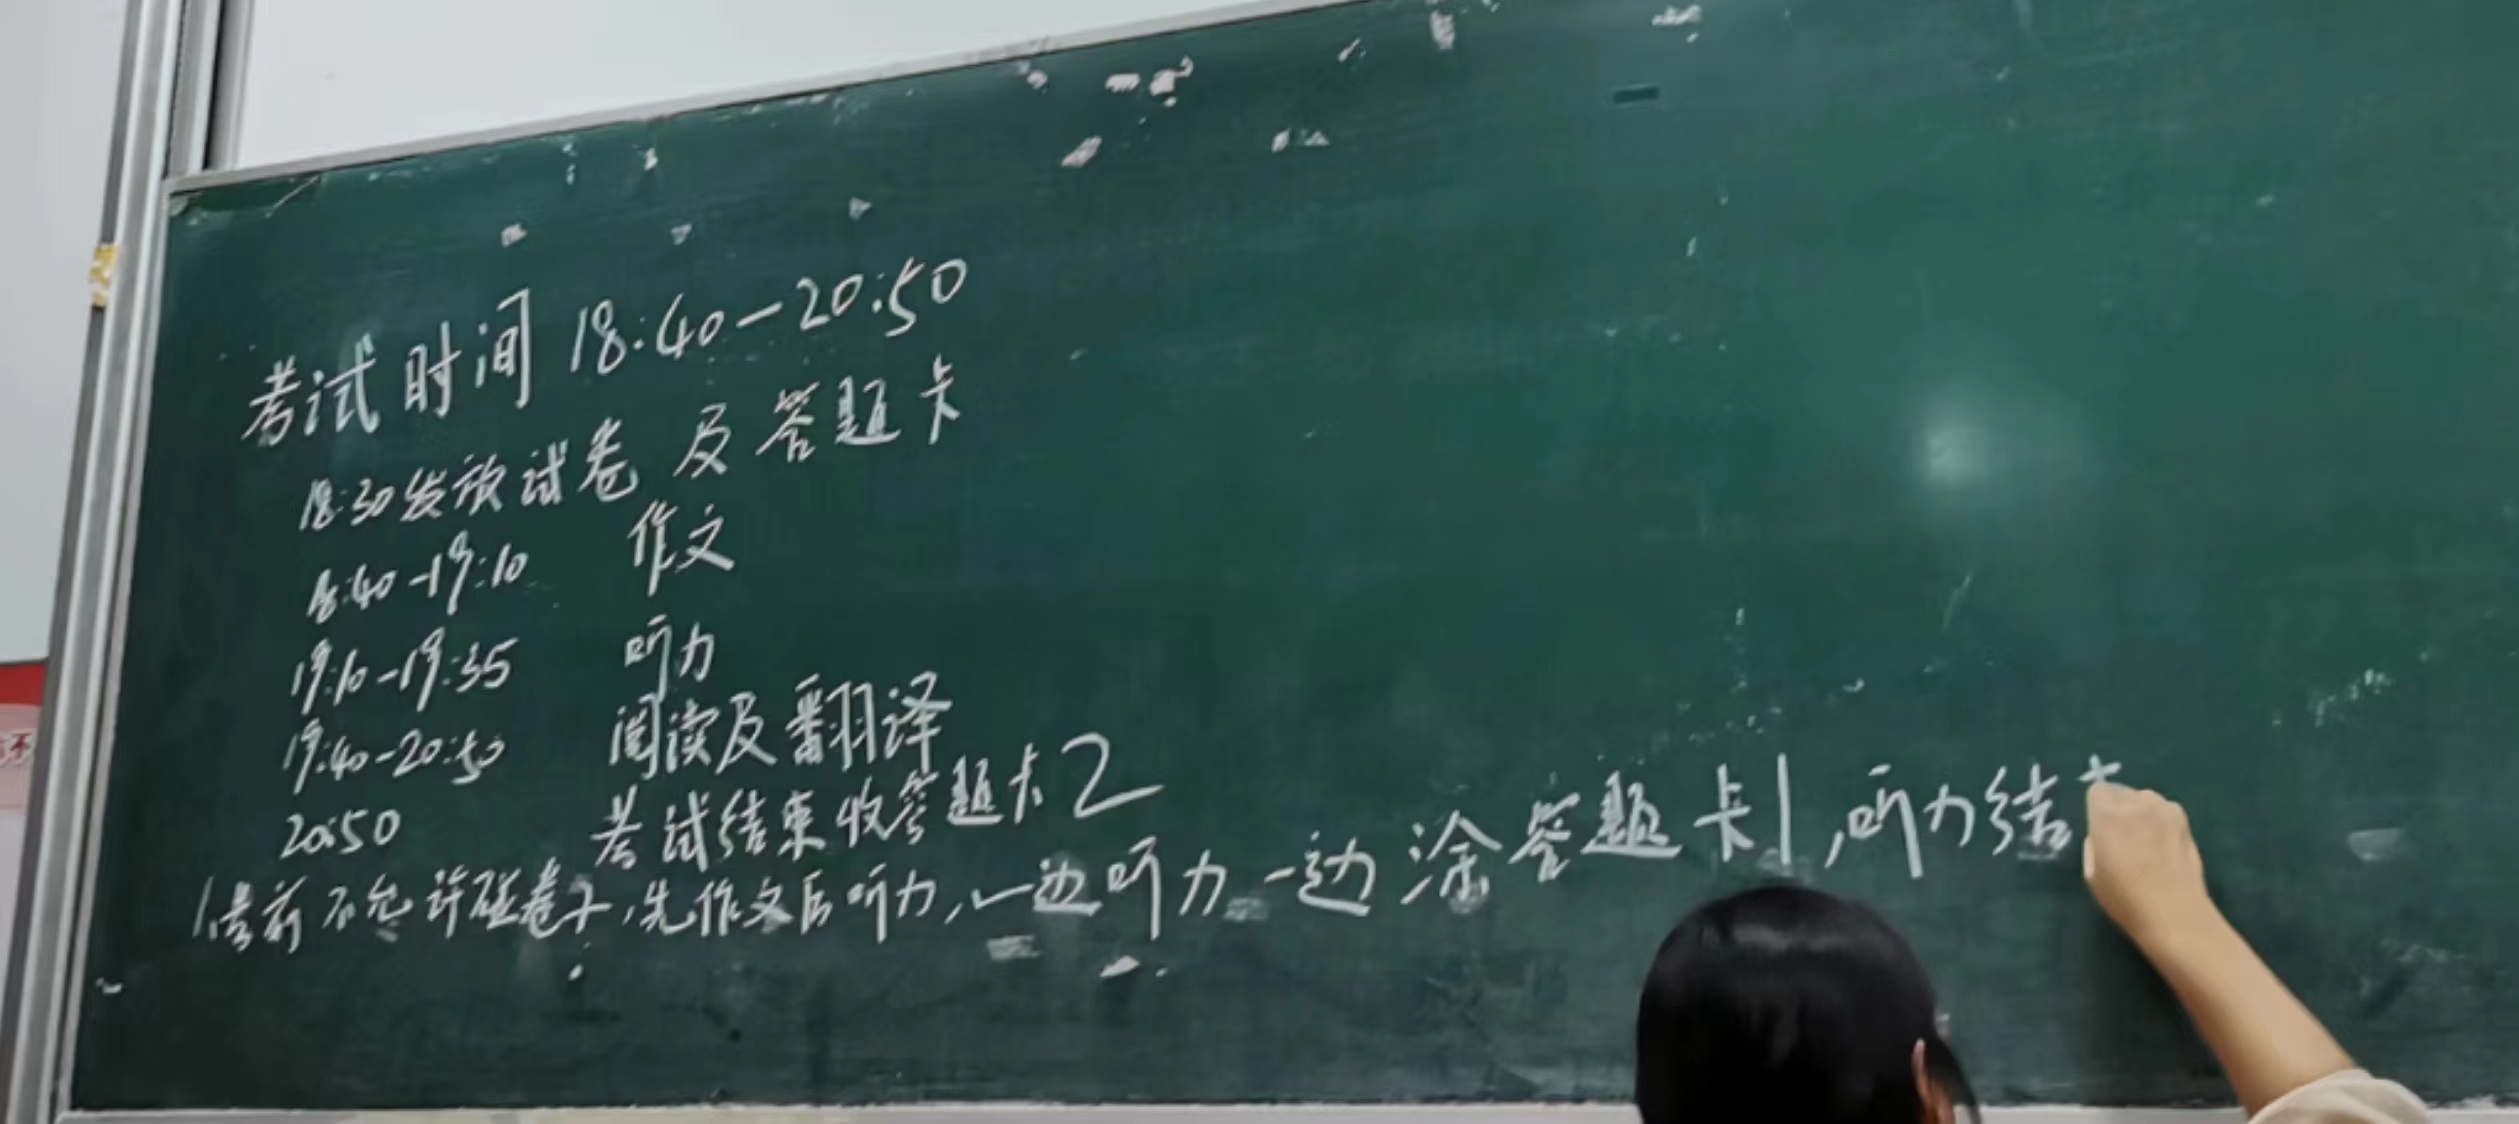 考试时间 18:40-20:50
18:30发放试卷及答题卡
18:40-19:10 作文
19:10-19:35 听力
19:40-20:50 阅读及翻译
20:50 考试结束收答题卡2
1.考前不允许碰卷子,先作文后听力,一边听力一边涂答题卡1,听力结